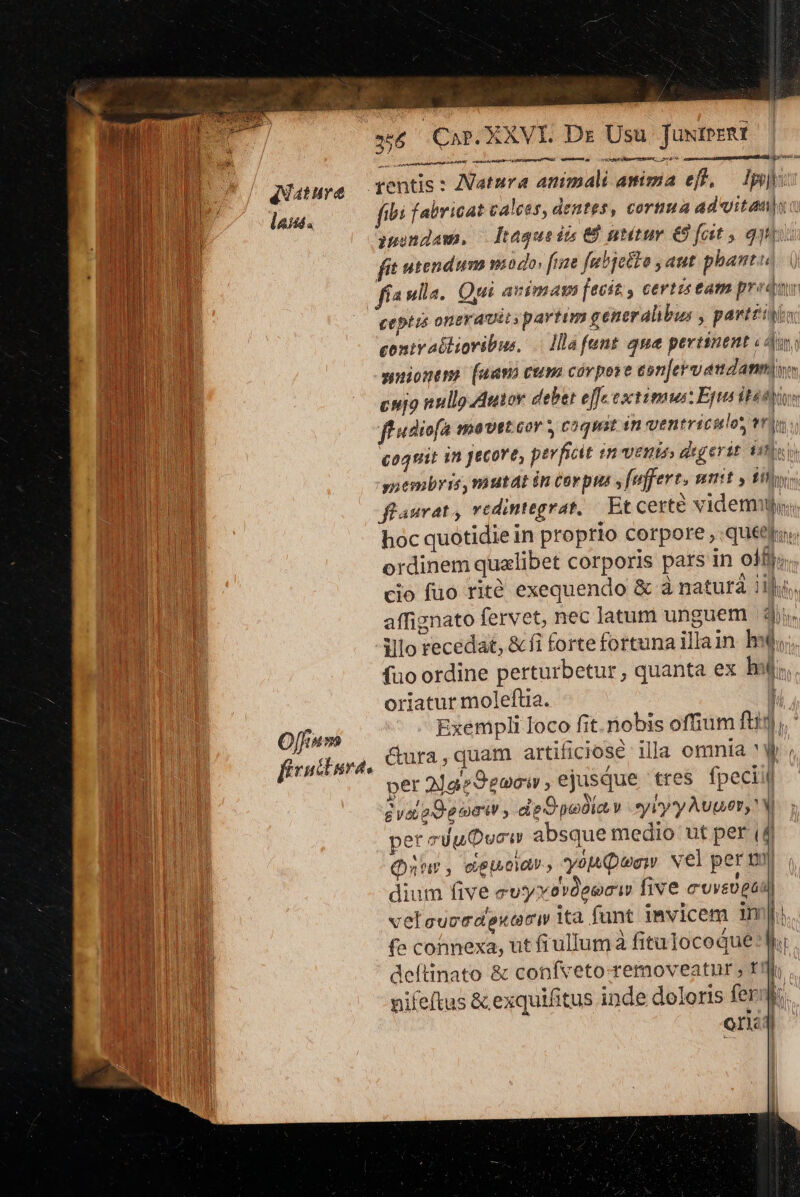 356 CAP. XXVI. DE Usu JUNIPERI
Naturæ
laus.
rentis: Natura animali anima est,
sibi fabricat calces, dentes, cornua ad vitam
quendam, Itaque iis & utitur & scit,
fit utendum modo, sine subjecto, aut phanta
sia ulla. Qui animam fecit, certis eam præ
ceptis oneravit, partim generalibus, partim
contractioribus. Illa sunt quæ pertinent
unionem suam cum corpore conservandam
cujo nullo Autor debet esse extimus: Ejus
studiosa movet cor, coquit in ventriculo,
coquit in jecore, perficit in venis, digerit
membris, mutat in corpus, suffert, unit,
staurat, redintegrat. Et certè videm
hoc quotidie in proprio corpore,
ordinem quælibet corporis pars in offi
cio suo ritè exequendo & à naturâ
assignato fervet, nec latum unguem
illo recedat, & si forte fortuna illa in
suo ordine perturbetur, quanta ex
oriatur molestia.
Ossium
structura.
Exempli loco sit nobis ossium
ctura, quam artificiosè illa omnia
per Διάρθρωσιν, ejusque tres speci
ἐνάρθρωσιν, ἀρθρωδίαν γίγγλυμον,
per σύμφυσιν absque medio ut per
φύσιν, ἁρμονίαν, γόμφωσιν vel per
dium sive συγχόνδρωσιν sive συνεύρωσ
vel συσσάρκωσιν ita sunt invicem
se connexa, ut si ullum à situ locoque
destinato & consveto removeatur,
nifestus & exquisitus inde doloris
oria